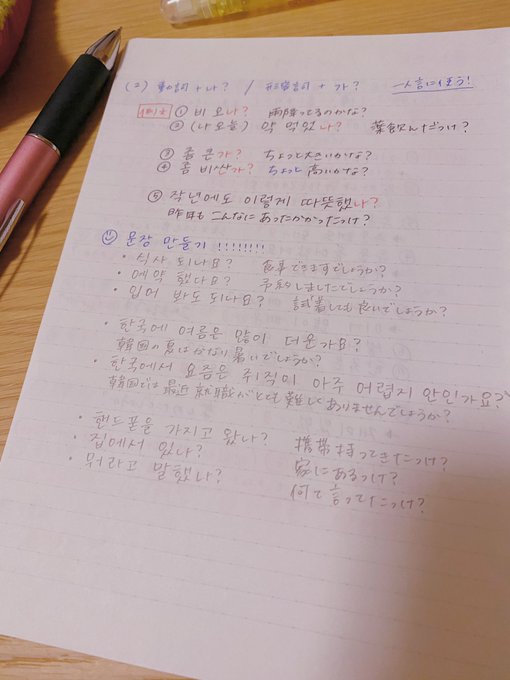 (2) 動詞+나? / 形容詞+가? 一人言に使う!
例文 ① 비 오나? 雨降ってるのかな?
② (나 오늘) 약 먹었나? 薬飲んだっけ?
③ 좀 큰가? ちょっと大きいかな?
④ 좀 비싼가? ちょっと高いかな?
⑤ 작년에도 이렇게 따뜻했나?
昨年も こんなに あったかかったっけ?
문장 만들기 !!!!!!!!
・식사 되나요? 食事できますでしょうか?
・예약 했나요? 予約しましたでしょうか?
・입어 봐도 되나요? 試着しても良いでしょうか?
・한국에 여름은 많이 더운가요?
韓国の夏はかなり暑いでしょうか?
・한국에서 요즘은 취직이 아주 어렵지 안인가요?
韓国では最近 就職がとても難しくありませんでしょうか?
・핸드폰을 가지고 왔나? 携帯持ってきたっけ?
・집에서 있나? 家にあるっけ?
・뭐라고 말했나? 何て言ってたっけ?